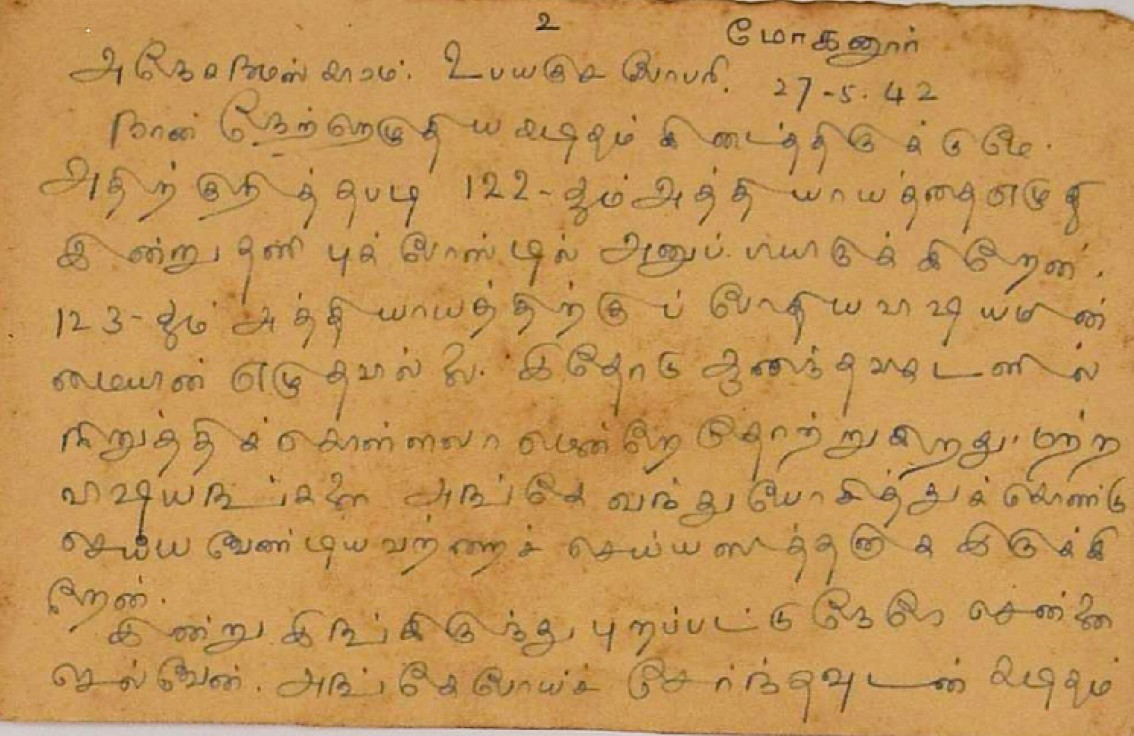 உ
மோகனூர்
அநேக நமஸ்காரம். உபயகுசலோபரி.
27-5-42
நான் நேற்றெழுதிய கடிதம் கிடைத்திருக்குமே.
அதிற் குறித்தபடி 122-தும் அத்தியாயத்தை எழுதி
இன்று தனி புக் போஸ்டில் அனுப்பியிருக்கிறேன்.
123-தும் அத்தியாயத்திற்குப் போதிய விஷயமின்
மையால் எழுதவில்லை. இதோடு ஆனந்தவிகடனில்
நிறுத்திக்கொள்ளலாமென்றே தோற்றுகிறது. மற்ற
விஷயங்களை அங்கே வந்து யோசித்துக் கொண்டு
செய்ய வேண்டியவற்றைச் செய்ய இருக்கி
றேன்.
இன்று இங்கிருந்து புறப்பட்டு நேரே சென்னை
செல்வேன். அங்கே போய்ச் சேர்ந்தவுடன் கடிதம்